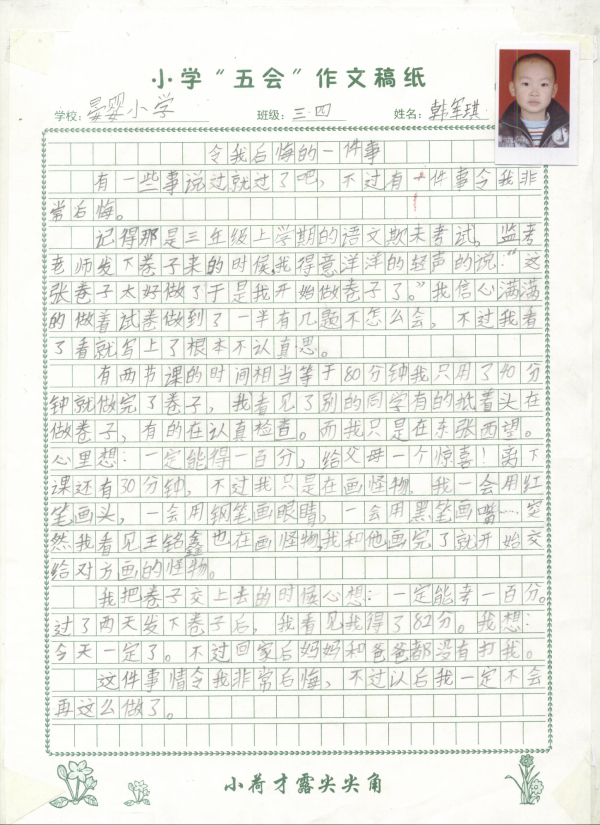 小学“五会”作文稿纸
学校：晏婴小学 班级：三·四 姓名：韩军琪
令我后悔的一件事
有一些事说过就过了吧，不过有一件事令我非
常后悔。
记得那是三年级上学期的语文期末考试，监考
老师发下卷子来的时候，我得意洋洋的轻声的说：“这
张卷子太好做了于是我开始做卷子了。”我信心满满
的做着试卷做到了一半有几题不怎么会，不过我看
了看就写上了根本不认真思。
有两节课的时间相当等于80分钟我只用了40分
钟就做完了卷子，我看见了别的同学有的抵着头在
做卷子，有的在认真检查。而我只是在东张西望。
心里想：一定能得一百分，给父母一个惊喜！离下
课还有30分钟，不过我只是在画怪物，我一会用红
笔画头，一会用钢笔画眼睛，一会用黑笔画嘴……空
然我看见王铭鑫也在画怪物，我和他画完了就开始交
给对方画的怪物。
我把卷子交上去的时候心想：一定能考一百分。
过了两天发下卷子后，我看见我得了82分。我想：
今天一定了。不过回家后妈妈和爸爸都没有打我。
这件事情令我非常后悔，不过以后我一定不会
再这么做了。
小荷才露尖尖角